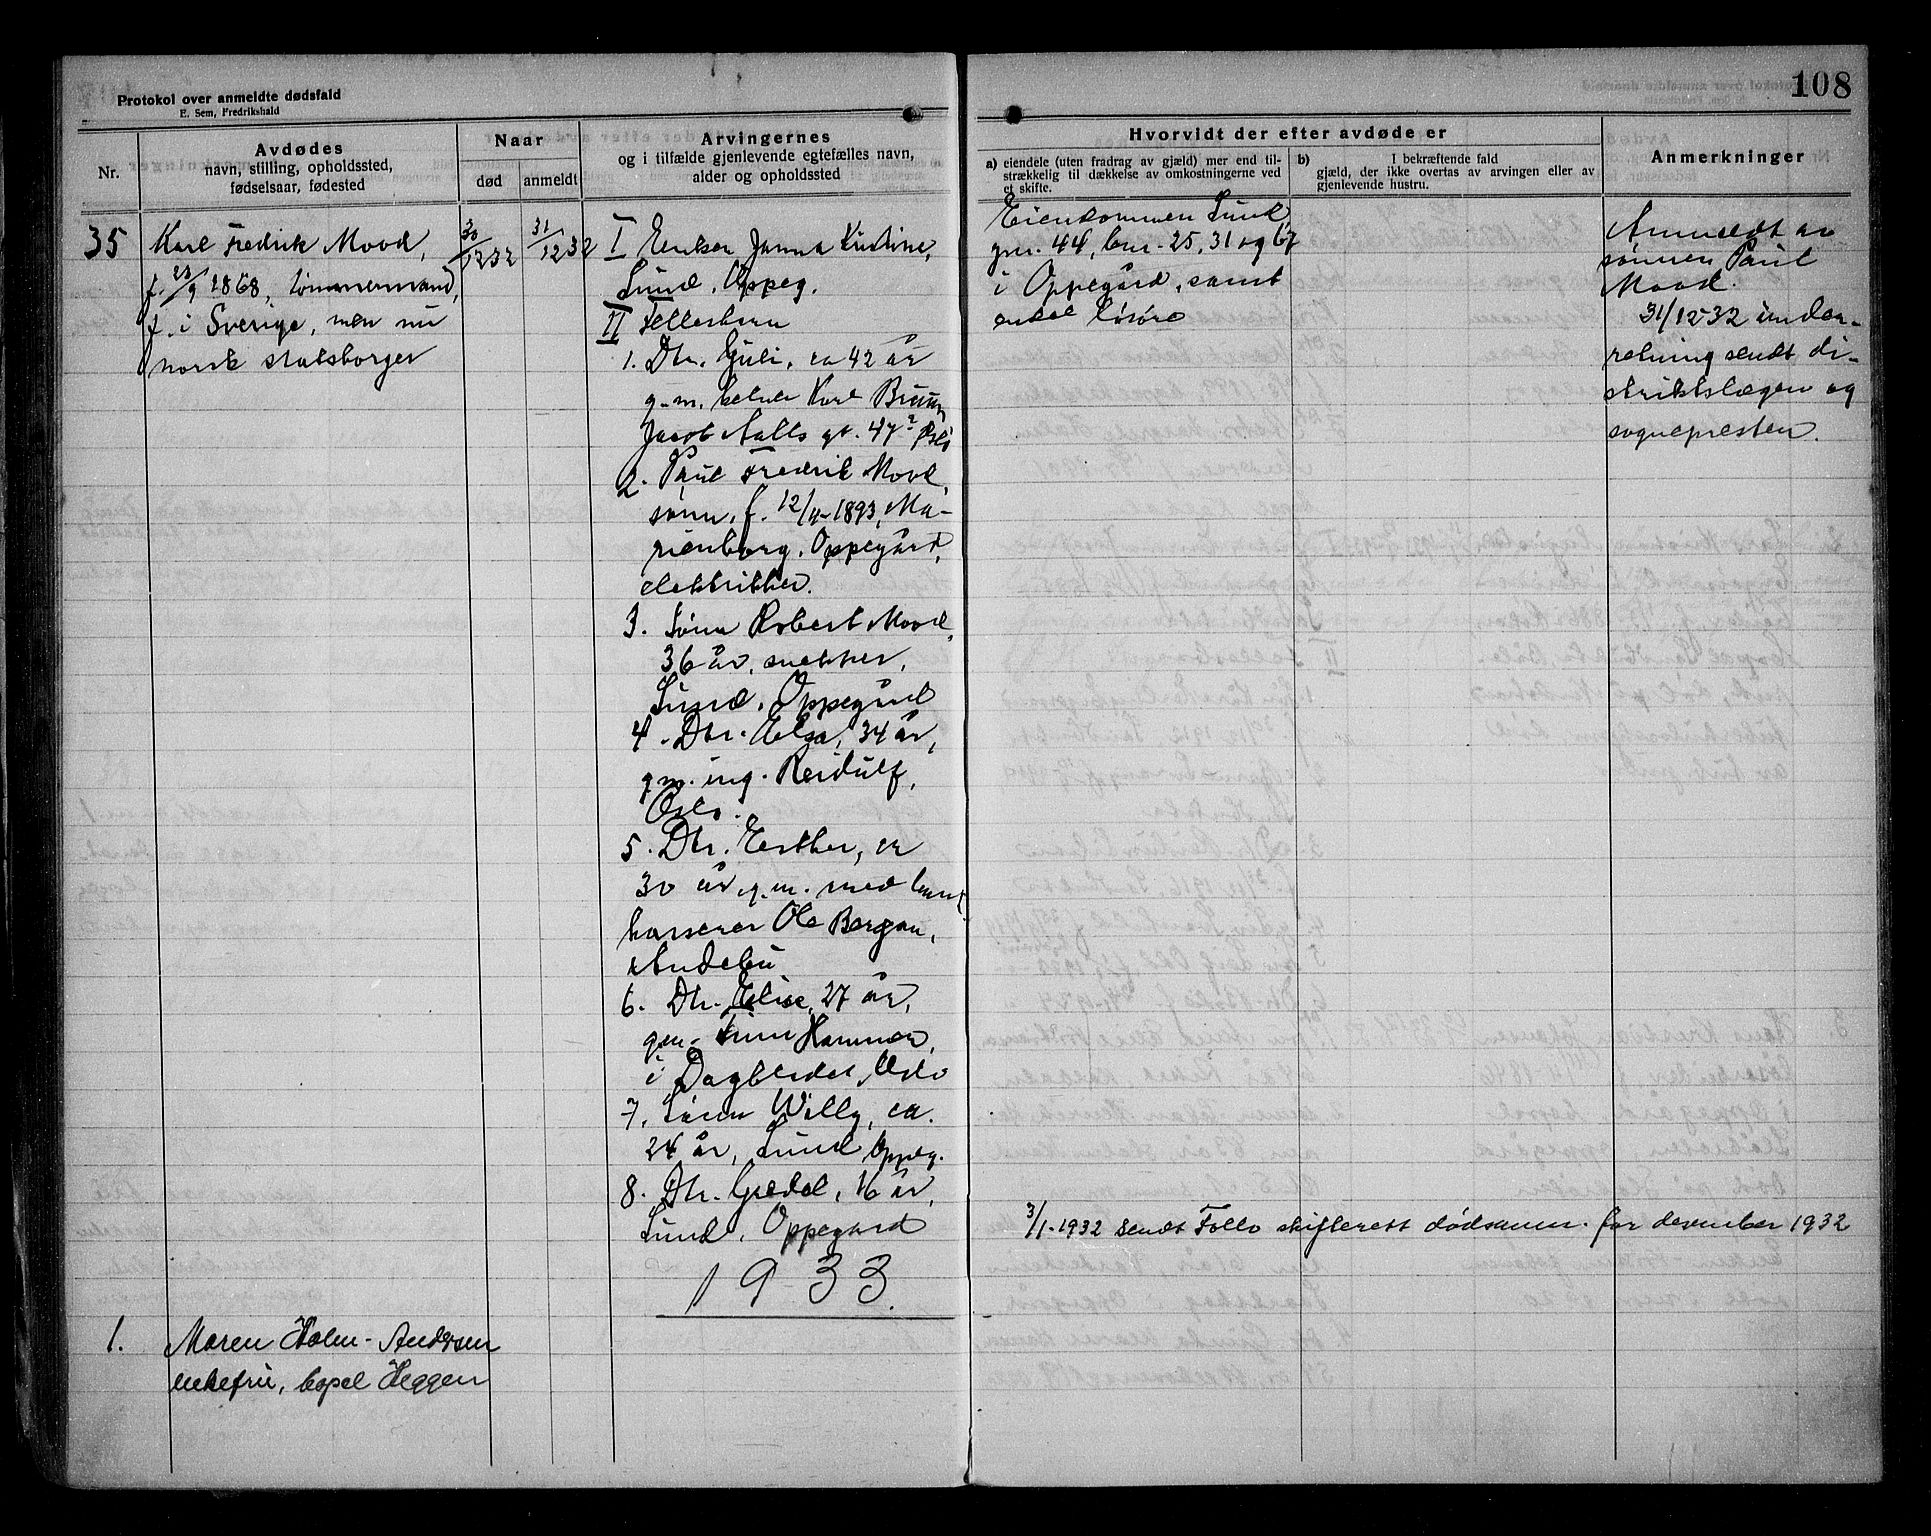 108
Protokol over anmeldte dødsfald
E. Sem, Fredrikshald
Nr.
Avdødes
navn, stilling, opholdssted,
fødselsaar, fødested
Naar
død
anmeldt
Arvingernes
og i tilfælde gjenlevende egtefælles navn,
alder og opholdssted
Hvorvidt der efter avdøde er
a) eiendele (uten fradrag av gjæld) mer end til-
strækkelig til dækkelse av omkostningerne ved
et skifte.
b) I bekræftende fald
gjæld, der ikke overtas av arvingen eller av
gjenlevende hustru.
Anmerkninger
35
Karl Fredrik Mood,
f. 23/9 1868, tømmermand,
f. i Sverige, men nu
norsk statsborger
30/12 32
31/12 32
I Enken Janna Kristine,
Lund, Oppeg.
II Fellesbarn
1. Dtr. Juli, ca 42 år
g.m. Karl Bruun
Jacob Aalls gt. 47 Oslo
2. Paul Fredrik Mood,
sønn, f. 12/4-1893, Ma-
rienborg, Oppegård,
elektriker.
3. Sønn Robert Mood,
36 år, snekker,
Lund, Oppegård
4. Dtr. Elsa, 34 år,
g.m. ing. Reidulf,
Oslo.
5. Dtr. Esther, ca
30 år, g.m. med herreds
kasserer Ole Bergan,
Andebu
6. Dtr. Elise, 27 år,
gm. Finn Hammer,
i Dagbladet, Oslo
7. Sønn Willy, ca.
24 år, Lund Oppeg.
8. Dtr. Gredel, 16 år,
Lund, Oppegård
Eiendommen Lund
gnr. 44, bnr. 25, 31 og 67
i Oppegård, samt
endel løsøre
Anmeldt av
sønnen Paul
Mood.
31/12-32 under-
retning sendt di-
striktslægen og
sognepresten.
3/1-1932 sendt Follo skifterett dødsanm. for desember 1932
1933.
1.
Maren Holm-Andersen
enkefru, bopel Heggen